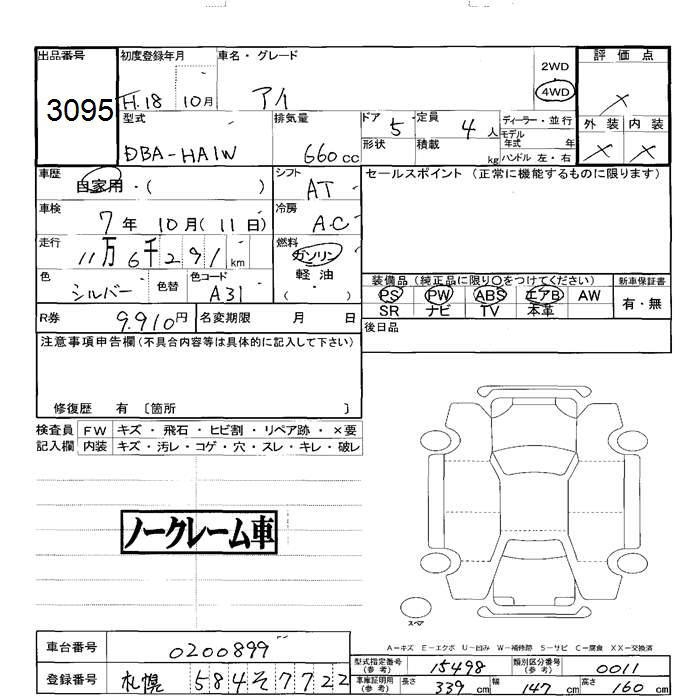 出品番号 初度登録年月 車名・グレード 2WD 評価点
3095 H.18 10月 アイ 4WD ×
型式 排気量 ドア 5 定員 4人 ディーラー・並行 外装 内装
形状 積載 kg モデル年式 年
DBA-HA1W 660cc ハンドル 左・右 × ×
車歴 自家用・( ) シフト AT セールスポイント (正常に機能するものに限ります)
車検 7年10月(11日) 冷房 A.C
走行 11万6千291km 燃料 ガソリン
軽油
( )
色 シルバー 色替 色コード A31
装備品(純正品に限り○をつけてください) 新車保証書
PS PW ABS エアB AW 有・無
SR ナビ TV 本革
R券 9.910円 名変期限 月 日 後日品
注意事項申告欄(不具合内容等は具体的に記入して下さい)
修復歴 有 〔箇所 〕
検査員 FW キズ・飛石・ヒビ割・リペア跡・×要
記入欄 内装 キズ・汚レ・コゲ・穴・スレ・キレ・破レ
ノークレーム車
スペア
A=キズ E=エクボ U=凹み W=補修跡 S=サビ C=腐食 XX=交換済
車台番号 0200899
型式指定番号(参考) 15498 類別区分番号(参考) 0011
登録番号 札幌 584そ7722
車庫証明用(参考) 長さ 339cm 幅 147cm 高さ 160cm